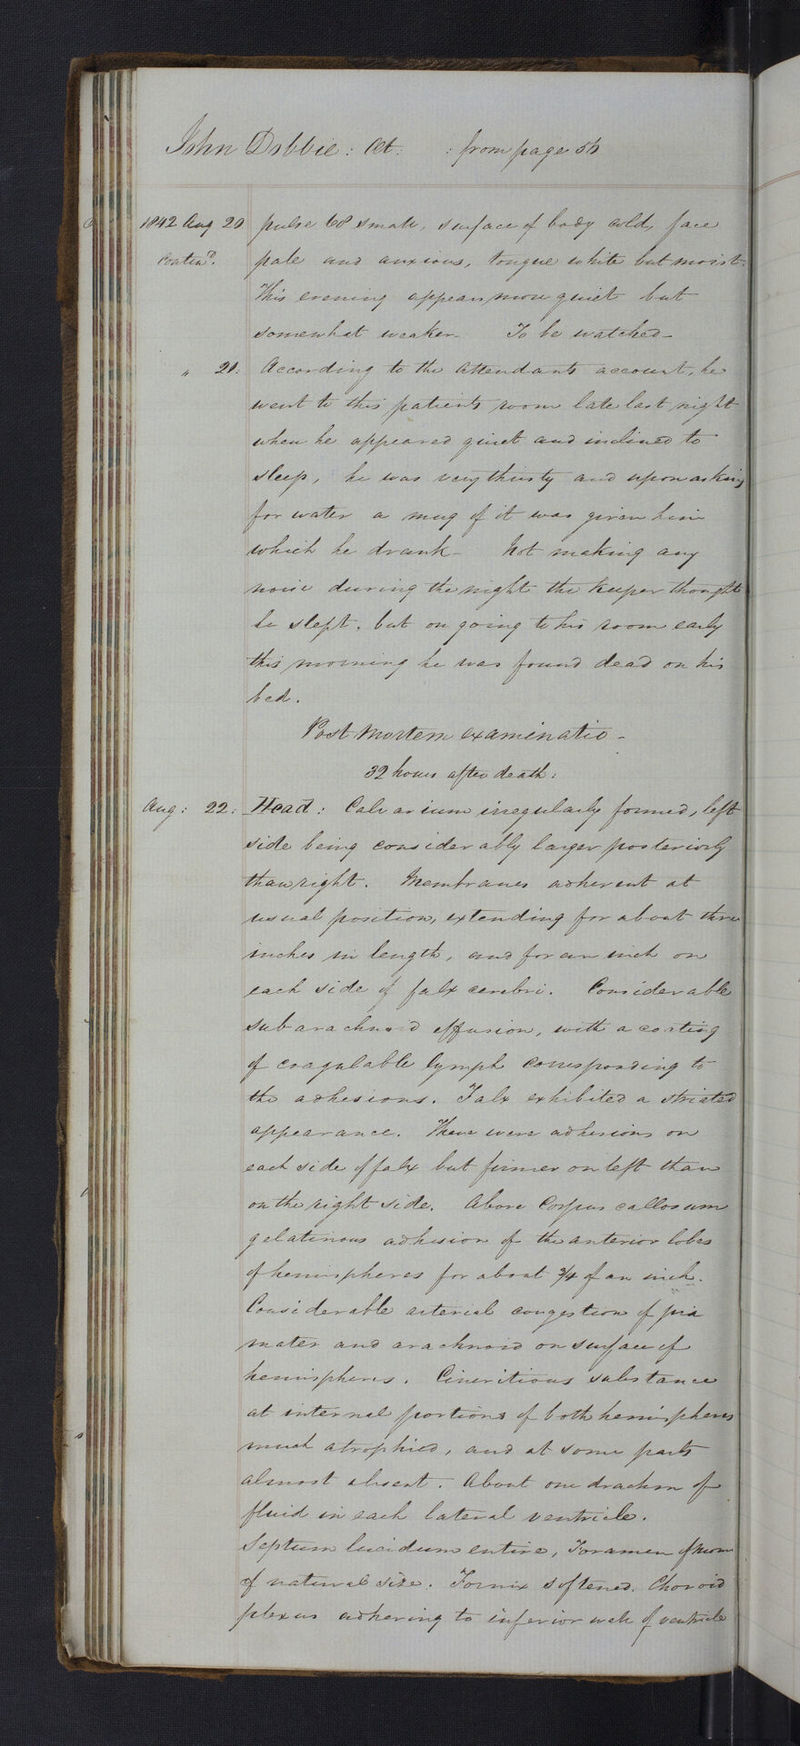 John Dobbie: Æt: : from page 56
1842 Aug 20 pulse 68 small, surface of body cold, face
Contind. pale and anxious, tongue white but moist.
This evening appears more quiet but
somewhat weaker- To be watched-
" 21. According to the attendants account, he
went to this patients room late last night
when he appeared quiet and inclined to
sleep, he was very thirsty and upon asking
for water a mug of it was given him
which he drank- Not making any
noise during the night the keeper thought
he slept, but on going to his room early
this morning he was found dead on his
bed.
Post Mortem examinatio-
32 hours after death:
Aug: 22: Head: Calvarium irregularly formed, left
side being considerably larger posteriorly
than right. Membranes adherent at
usual position, extending for about three
inches in length, and for an inch on
each side of falx cerebri. Considerable
subarachnoid effusion, with a coating
of coagulable lymph corresponding to
the adhesions. Falx exhibited a striated
appearance. There were adhesions on
each side of falx but firmer on left than
on the right side. Above Corpus callosum
gelatinous adhesion of the anterior lobes
of hemispheres for about 3/4 of an inch.
Considerable arterial congestion of pia
mater and arachnoid on surface of
hemispheres. Cineritious substance
at internal portions of both hemispheres
much atrophied, and at some parts
almost absent. About one drachm of
fluid in each lateral ventricle.
Septum lucidum entire, Foramen of Monro
of natural size. Fornix softened. Choroid
plexus adhering to inferior wall of ventricle